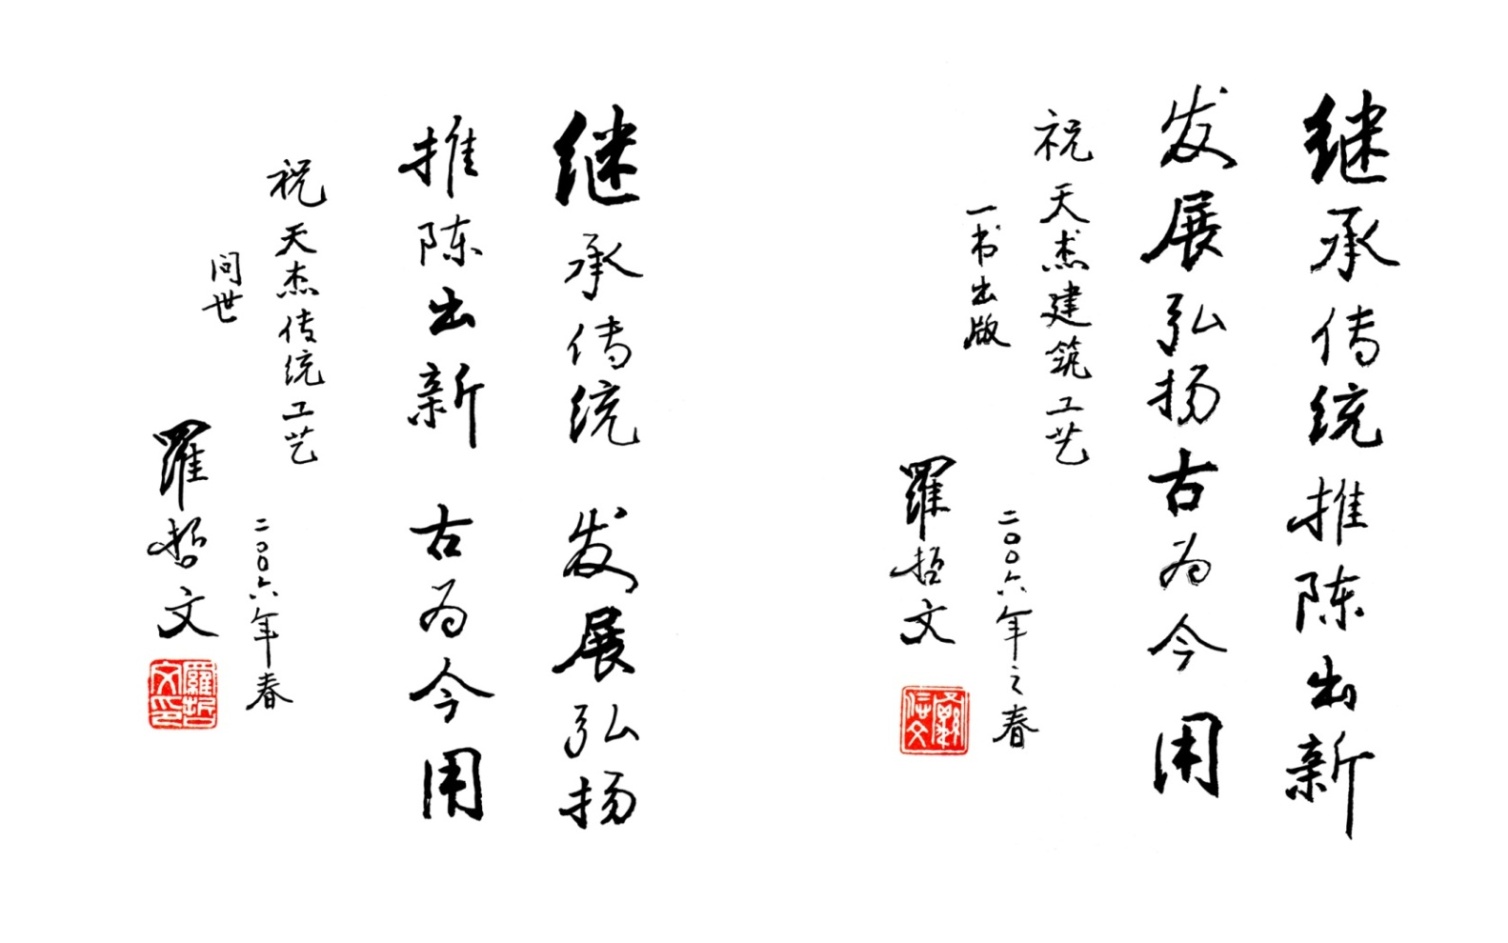 继承传统推陈出新
发展弘扬古为今用
祝天杰建筑工艺
一书出版
二〇〇六年之春
羅哲文
继承传统 发展弘扬
推陈出新 古为今用
祝天杰传统工艺
问世
二〇〇六年春
羅哲文
羅哲文印